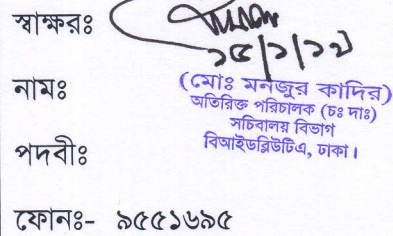 স্বাক্ষরঃ
নামঃ
(মোঃ মনজুর কাদির)
অতিরিক্ত পরিচালক (চঃ দাঃ)
সচিবালয় বিভাগ
বিআইডব্লিউটিএ, ঢাকা।
পদবীঃ
ফোনঃ- ৯৫৫১৬৯৫